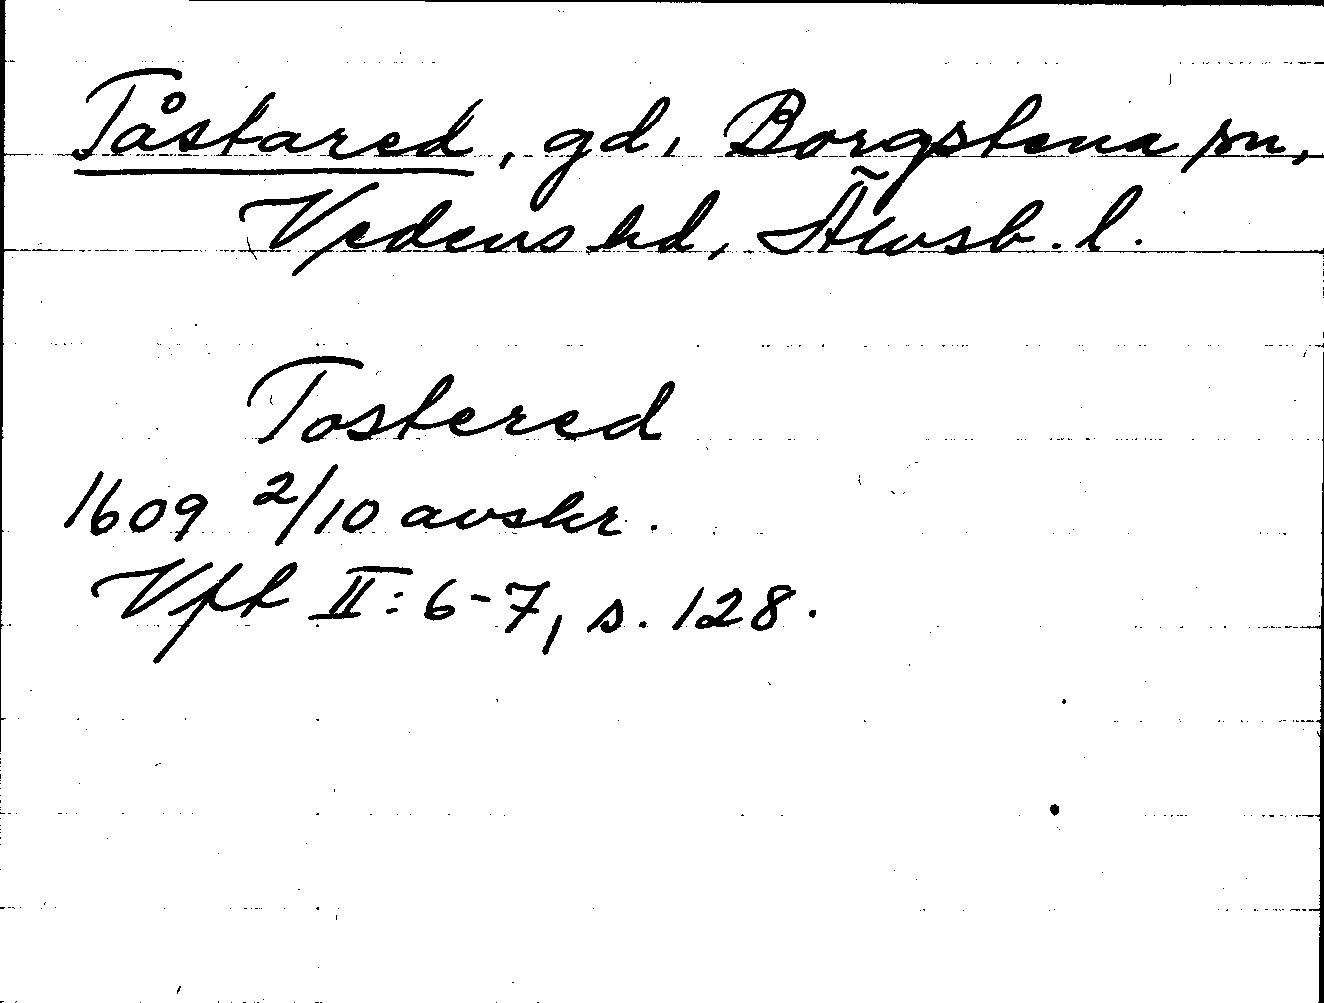 Tåstared, gd, Borgstena sn,
Vedens hd, Älvsb. l.
Tostered
1609 2/10 avskr.
Vft II: 6-7, s. 128.